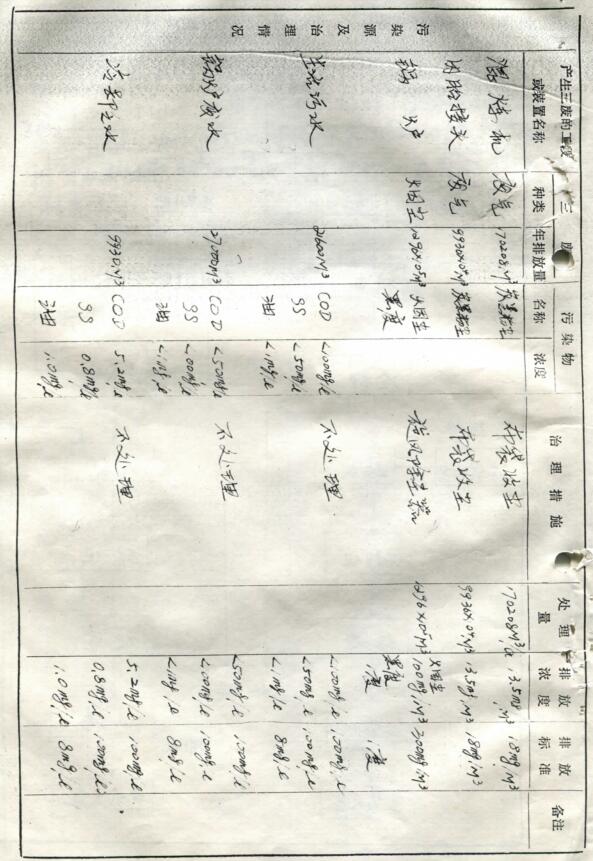 污染源及治理情况
产生三废的工段或装置名称 三废 污染物 治理措施 处理量 排放浓度 排放标准 备注
种类 年排放量 名称 浓度
混炼机 废气 170208 M³ 炭黑粉尘 布袋收尘 170208 M³ 13.5mg/M³ 18mg/M³
内胎接头 废气 9936×10⁴M³ 炭黑粉尘 布袋收尘 9936×10⁴M³ 13.5mg/M³ 18mg/M³
锅炉 烟尘 1296×10⁴M³ 烟尘 旋风除尘器 1296×10⁴M³ 烟尘 100mg/M³ 200mg/M³
黑度 黑度 1度 1度
生活污水 21600M³ COD <100mg/l 不处理 <100mg/l 100mg/l
SS <50mg/l <50mg/l 100mg/l
油 <1mg/l <1mg/l 8mg/l
锅炉废水 27000M³ COD <50mg/l 不处理 <50mg/l 100mg/l
SS <100mg/l <100mg/l 100mg/l
油 <1mg/l <1mg/l 8mg/l
冷却水 9930M³ COD 5.2mg/l 不处理 5.2mg/l 100mg/l
SS 0.8mg/l 0.8mg/l 100mg/l
油 1.0mg/l 1.0mg/l 8mg/l